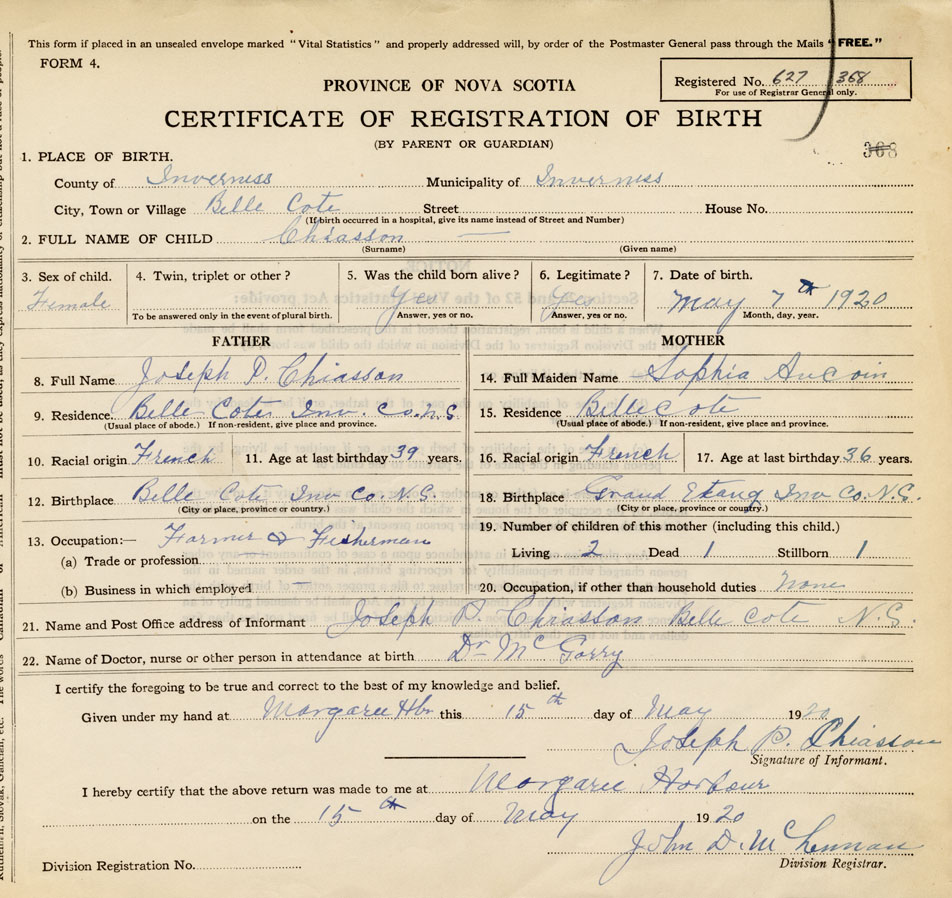 This form if placed in an unsealed envelope marked "Vital Statistics" and properly addressed will, by order of the Postmaster General pass through the Mails "FREE."
FORM 4.
Registered No. 627 368
For use of Registrar General only.
PROVINCE OF NOVA SCOTIA
CERTIFICATE OF REGISTRATION OF BIRTH
(BY PARENT OR GUARDIAN)
368
1. PLACE OF BIRTH.
County of Inverness Municipality of Inverness
City, Town or Village Belle Cote Street House No.
(If birth occurred in a hospital, give its name instead of Street and Number)
2. FULL NAME OF CHILD Chiasson —
(Surname) (Given name)
3. Sex of child. 4. Twin, triplet or other? 5. Was the child born alive? 6. Legitimate? 7. Date of birth.
Female Yes Yes May 7th 1920
To be answered only in the event of plural birth. Answer, yes or no. Answer, yes or no. Month, day, year.
FATHER MOTHER
8. Full Name Joseph P. Chiasson 14. Full Maiden Name Sophia AuCoin
9. Residence Belle Cote Inv. Co. N.S 15. Residence Belle Cote
(Usual place of abode.) If non-resident, give place and province. (Usual place of abode.) If non-resident, give place and province.
10. Racial origin French 11. Age at last birthday 39 years. 16. Racial origin French 17. Age at last birthday 36 years.
12. Birthplace Belle Cote Inv Co. N.S. 18. Birthplace Grand Etang Inv Co. N.S.
(City or place, province or country.) (City or place, province or country.)
13. Occupation:— Farmer & Fisherman 19. Number of children of this mother (including this child.)
(a) Trade or profession Living 2 Dead 1 Stillborn 1
(b) Business in which employed — 20. Occupation, if other than household duties none
21. Name and Post Office address of Informant Joseph P. Chiasson Belle Cote N.S.
22. Name of Doctor, nurse or other person in attendance at birth Dr McGarry
I certify the foregoing to be true and correct to the best of my knowledge and belief.
Given under my hand at Margaree Hbr this 15th day of May 1920
Joseph P. Chiasson
Signature of Informant.
I hereby certify that the above return was made to me at Margaree Harbour
on the 15th day of May 1920
John D. McLennan
Division Registration No. Division Registrar.